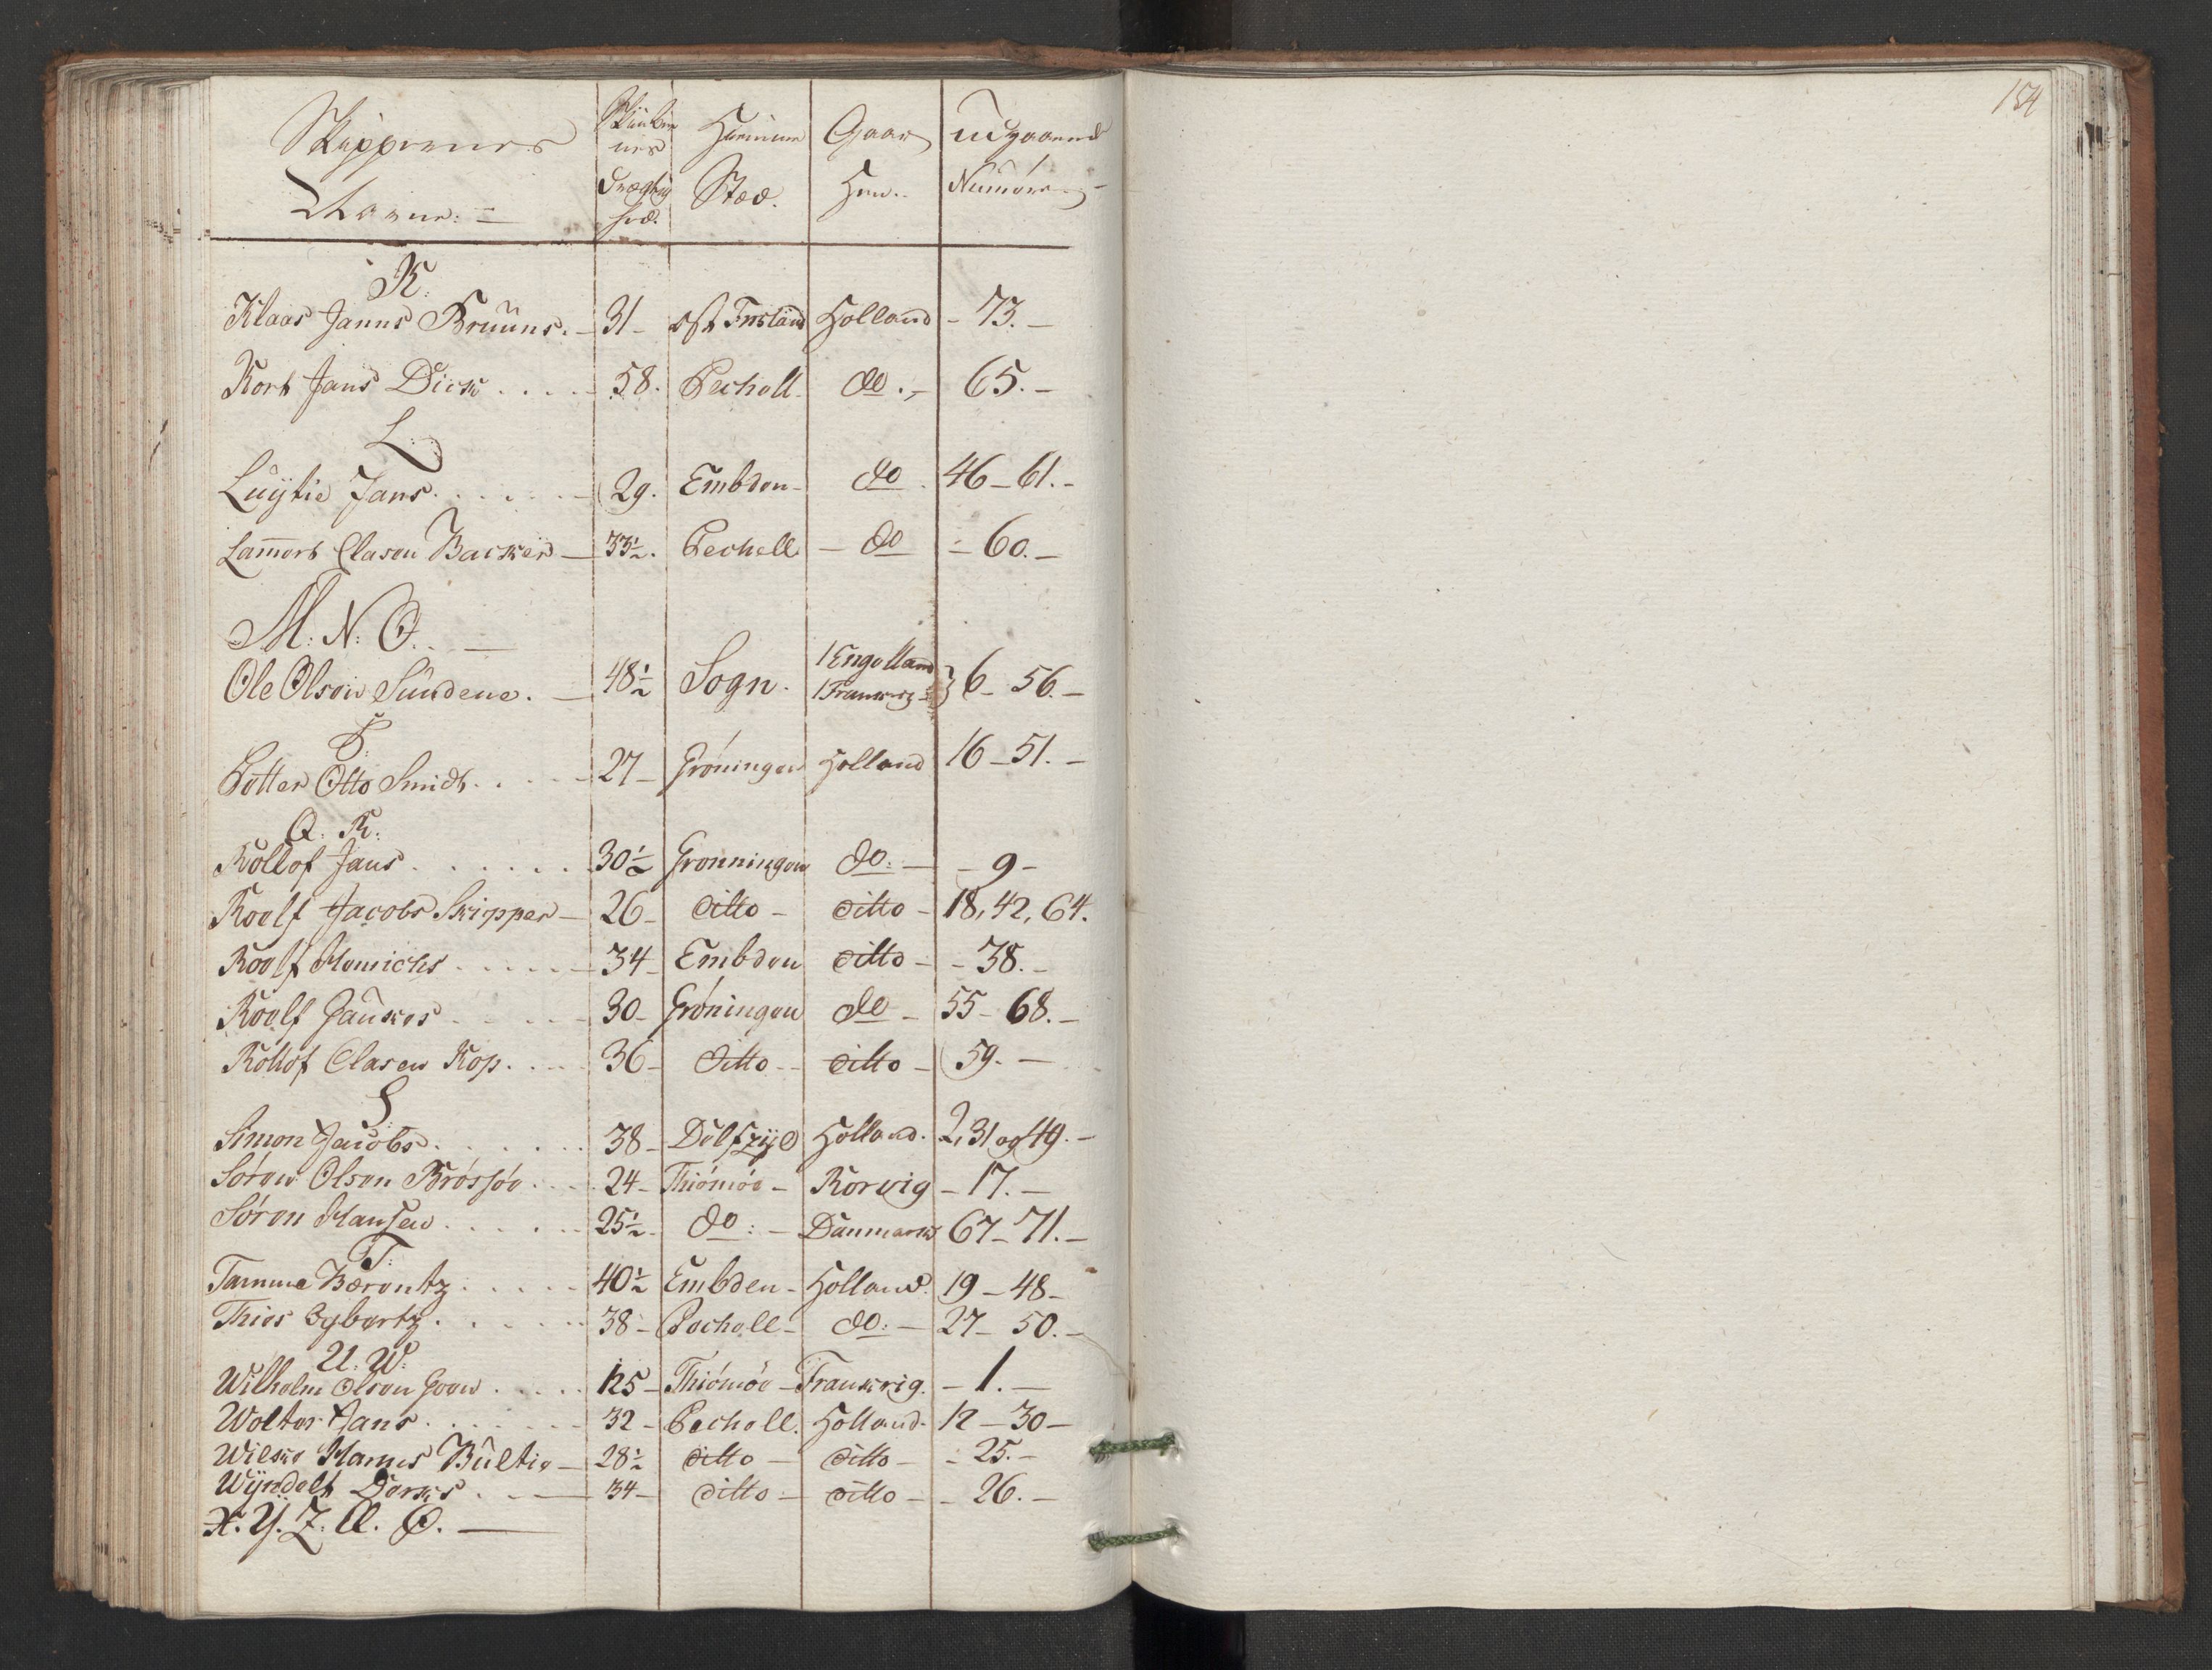 154
Skippernes Nafne: Skibernes Drægtighed. Hiemme Sted. Gaar Hen. Udgaaende Numere
K:
Klaas Janns Bruuns. 31 Ost Frisland Holland 73.
Kort Jans Dick 58. Pechell do. 65.
L:
Luÿtie Jans. 29. Embden do 46-61.
Lam̄ert Clasen Backer 33½. Pechell do 60.
M: N: O.
Ole Olsen Sundene. 48½ Sogn. 1 Engelland 1 Frankrig } 6-56.
P:
Potter Otto Smidt. 27 Grøningen Holland 16-51.
Q. R:
Rollof Jans 30½ Grønningen do: 9
Roelf Jacobs Skipper 26 ditto ditto 18, 42, 64.
Roelf Henrichs 34 Embden ditto 38.
Roelf Jaŭkes 30 Grøningen do 55-68.
Rollof Clasen Kop. 36 ditto ditto 59.
S
Simon Jacobs. 38 Delfzÿl Holland. 2, 31 og 49.
Søren Olsen Brøsøe 24 Thiømøe Rorvig 17.
Søren Hansen 25½ do: Danmark 67-71.
T:
Tamme Berentz 40½ Embden Holland. 19-48
Thies Sybertz. 38 Pechell do: 27-50.
U. W:
Wilhelm Olsen Goen 125 Thiømøe Frankrig. 1.
Wolter Jans. 32 Pechell. Holland. 12-30
Wilke Hames Bŭltie 28½ ditto ditto 25.
Wÿndelt Derks 34 ditto ditto 26.
X. Y. Z. Æ. Ø.